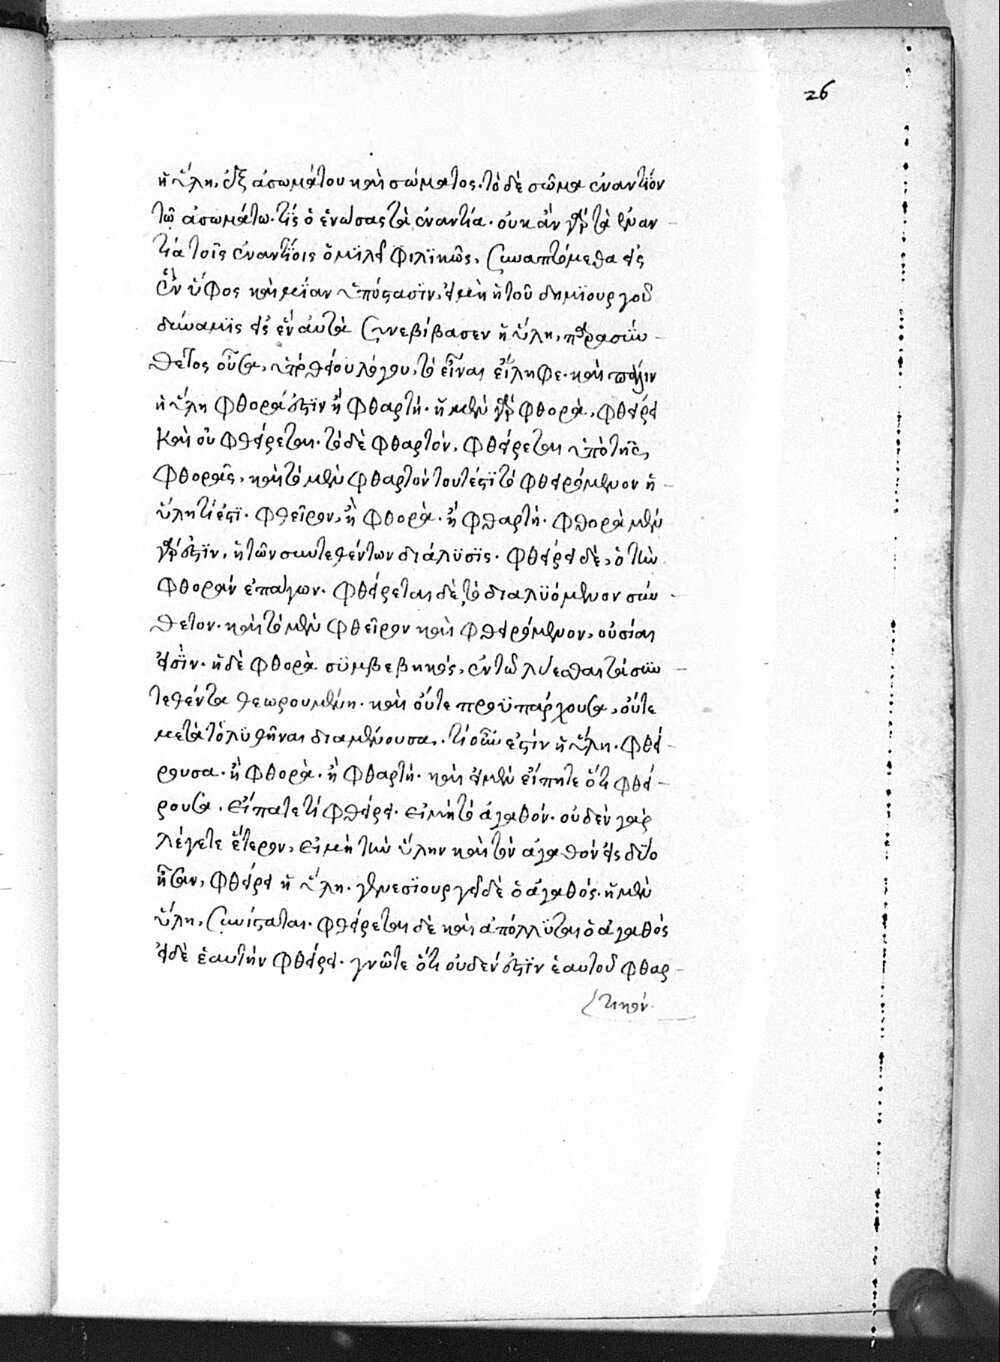 26
ἢ ὕλη, ἐξ ἀσωμάτου καὶ σώματος. τὸ δὲ σῶμα ἐναντίον
τῶ ἀσωμάτω. τίς ὁ ἑνώσας τὰ ἐναντία. οὐκ ἂν γὰρ τὰ ἐναν-
τία τοῖς ἐναντίοις ὁμιλεῖ φιλϊκῶς, συναπτόμεθα εἰς
ἓν ὕφος καὶ μίαν ὑπόστασϊν, εἰ μὴ ἡ τοῦ δημϊουργοῦ
δύναμϊς εἰς ἓν αὐτὰ συνεβίβασεν ἡ ὕλη, παρασύν-
θετος οὖσα, ὑπὸ θείου λόγου, τὸ εἶναι εἴληφε. καὶ πάλιν
ἡ ὕλη φθορά ἐστϊν ἢ φθαρτή. ἡ μὲν γὰρ φθορὰ, φθείρει
καὶ οὐ φθείρεται. τὸ δὲ φθαρτὸν, φθείρεται ὑπὸ τῆς
φθορᾶς, καὶ τὸ μὲν φθαρτὸν τουτέστϊ τὸ φθειρόμενον ἡ
ὕλη τί ἐστϊ. φθεῖρον, ἢ φθορὰ. ἢ φθαρτή. φθορὰ μὲν
γάρ ἐστϊν, ἡ τῶν συντεθέντων διάλυσϊς. φθείρει δὲ, ὁ τὴν
φθορὰν ἐπάγων. φθείρεται δὲ τὸ διαλϋόμενον σύν-
θετον. καὶ τὸ μὲν φθεῖρον καὶ φθειρόμενον, οὐσίαι
εἰσὶν. ἡ δὲ φθορὰ συμβεβηκός, ἐν τῶ λύεσθαι τὰ συν-
τεθέντα θεωρουμένη. καὶ οὔτε προϋπάρχουσα, οὔτε
μετὰ τὸ λυθῆναι διαμένουσα. τί οὖν ἐστϊν ἡ ὕλη. φθεί-
ρουσα. ἢ φθορὰ. ἢ φθαρτή. καὶ εἰ μὲν εἴπητε ὅτι φθεί-
ρουσα. εἴπατε τί φθείρει. εἰ μὴ τὸ ἀγαθόν. οὐδὲν γὰρ
λέγετε ἕτερον, εἰ μὴ τὴν ὕλην καὶ τὸν ἀγαθόν εἰς δύο
ἦσαν, φθείρει ἡ ὕλη. γενεσϊουργεῖ δὲ ὁ ἀγαθός. ἡ μὲν
ὕλη, συνίσταται. φθείρεται δὲ καὶ ἀπόλλϋται ὁ ἀγαθός
εἰ δὲ ἑαυτὴν φθείρει. γνῶτε ὅτι οὐδέν ἐστϊν ἑαυτοῦ φθαρ-
τικόν.